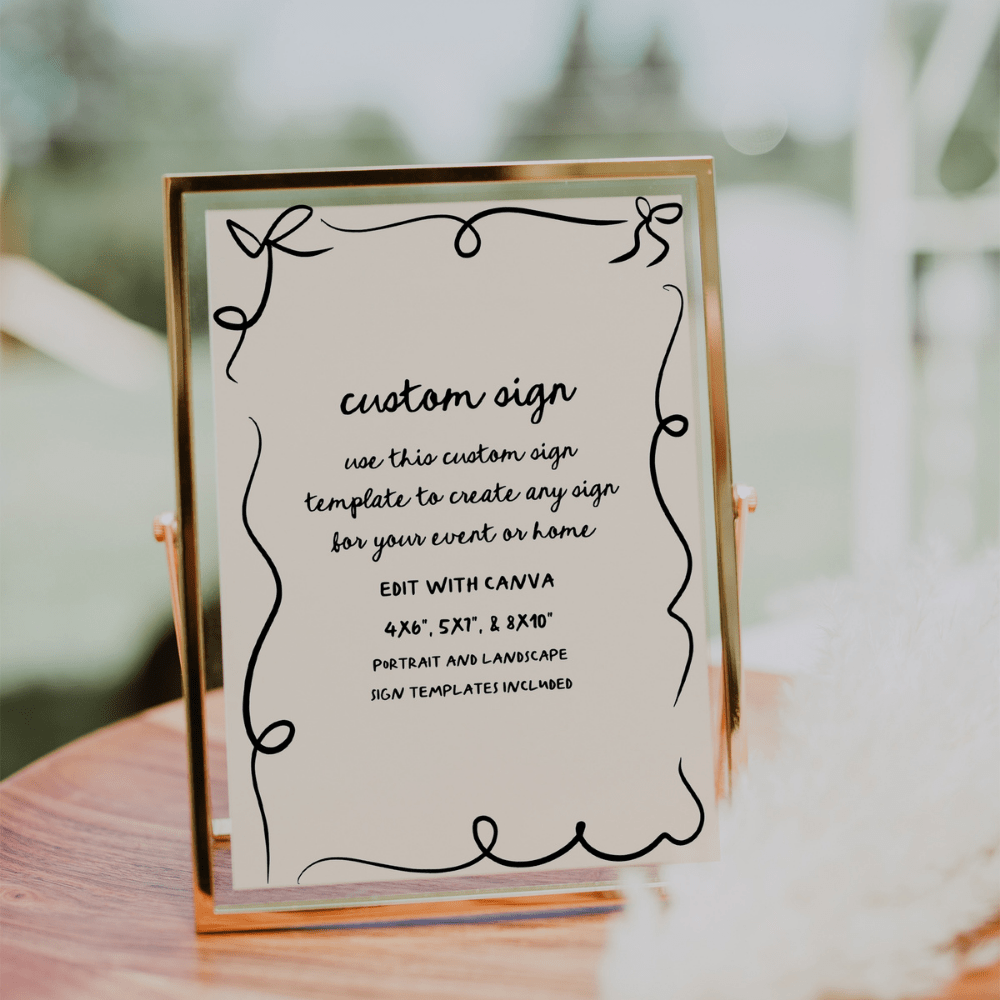 custom sign
use this custom sign
template to create any sign
for your event or home
EDIT WITH CANVA
4X6", 5X7", & 8X10"
PORTRAIT AND LANDSCAPE
SIGN TEMPLATES INCLUDED